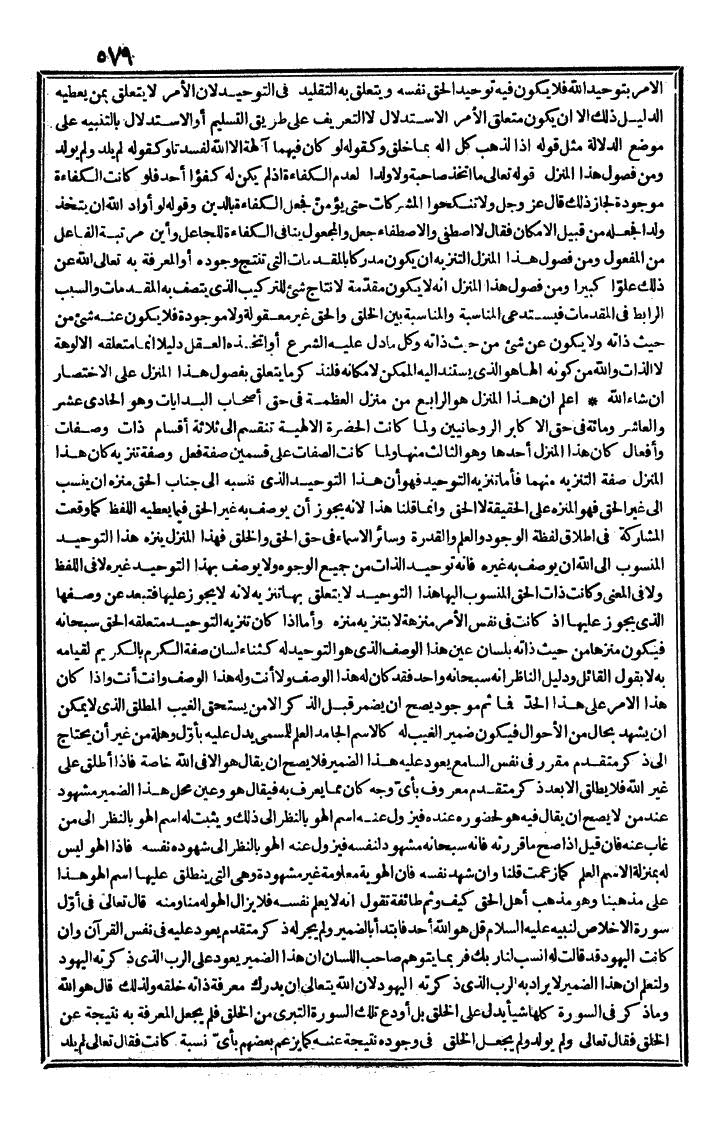 ٥٧٩
الامر بتوحيد الله فلا يكون فيه توحيد الحق نفسه ويتعلق به التقليد فى التوحيد لان الأمر لا يتعلق بمن يعطيه
الدليل ذلك الا ان يكون متعلق الأمر الاستدلال لا التعريف على طريق التسليم أو الاستدلال بالتنبيه على
موضع الدلالة مثل قوله اذا لذهب كل اله بما خلق وكقوله لو كان فيهما آلهة الا الله لفسدتا وكقوله لم يلد ولم يولد
ومن فصول هذا المنزل قوله تعالى ما اتخذ صاحبة ولا ولدا لعدم الكفاءة اذ لم يكن له كفؤا أحد فلو كانت الكفاءة
موجودة لجاز ذلك قال عز وجل ولا تنكحوا المشركات حتى يؤمنّ فجعل الكفاءة بالدين وقوله لو أراد الله ان يتخذ
ولدا لجعله من قبيل الامكان فقال لا اصطفى والاصطفاء جعل والمجعول ينافى الكفاءة للجاعل وأين مرتبة الفاعل
من المفعول ومن فصول هذا المنزل التنزيه ان يكون مدركا بالمقدمات التى تنتج وجوده أو المعرفة به تعالى الله عن
ذلك علوّا كبيرا ومن فصول هذا المنزل انه لا يكون مقدّمة لانتاج شئ للتركيب الذى يتصف به المقدمات والسبب
الرابط فى المقدمات فيستدعى المناسبة والمناسبة بين الخلق والحق غير معقولة ولا موجودة فلا يكون عنه شئ من
حيث ذاته ولا يكون عن شئ من حيث ذاته وكل مادل عليه الشرع أو اتخذه العقل دليلا انما متعلقه الالوهة
لا الذات والله من كونه الها هو الذى يستند اليه الممكن لامكانه فلنذكر ما يتعلق بفصول هذا المنزل على الاختصار
ان شاء الله * اعلم ان هذا المنزل هو الرابع من منزل العظمة فى حق أصحاب البدايات وهو الحادى عشر
والعاشر ومائة فى حق الاكابر الروحانيين ولما كانت الحضرة الالهية تنقسم الى ثلاثة أقسام ذات وصفات
وأفعال كان هذا المنزل أحدها وهو الثالث منها ولما كانت الصفات على قسمين صفة فعل وصفة تنزيه كان هذا
المنزل صفة التنزيه منهما فأما تنزيه التوحيد فهو أن هذا التوحيد الذى ننسبه الى جناب الحق منزه ان ينسب
الى غير الحق فهو المنزه على الحقيقة لا الحق وانما قلنا هذا لانه يجوز أن يوصف به غير الحق فيما يعطيه اللفظ كما وقعت
المشاركة فى اطلاق لفظة الوجود والعلم والقدرة وسائر الاسماء فى حق الحق والخلق فهذا المنزل ينزه هذا التوحيد
المنسوب الى الله ان يوصف به غيره فانه توحيد الذات من جميع الوجوه ولا يوصف بهذا التوحيد غيره لا فى اللفظ
ولا فى المعنى وكانت ذات الحق المنسوب اليها هذا التوحيد لا يتعلق بها تنزيه لانه لا يجوز عليها فتبعد عن وصفها
الذى يجوز عليها اذ كانت فى نفس الأمر منزهة لا بتنزيه منزه وأما اذا كان تنزيه التوحيد متعلقه الحق سبحانه
فيكون منزها من حيث ذاته بلسان عين هذا الوصف الذى هو التوحيد له كثناء لسان صفة الكرم بالكريم لقيامه
به لا بقول القائل ودليل الناظر انه سبحانه واحد فقد كان له هذا الوصف ولا أنت وله هذا الوصف وانت أنت واذا كان
هذا الامر على هذا الحدّ فما ثم موجود يصح ان يضمر قبل الذكر الا من يستحق الغيب المطلق الذى لا يمكن
ان يشهد بحال من الأحوال فيكون ضمير الغيب له كالاسم الجامد العلم للمسمى يدل عليه بأوّل وهلة من غير أن يحتاج
الى ذكر متقدم مقرر فى نفس السامع يعود عليه هذا الضمير فلا يصح ان يقال هو الا فى الله خاصة فاذا أطلق على
غير الله فلا يطلق الا بعد ذكر متقدم معروف بأىّ وجه كان مما يعرف به فيقال هو وعين محل هذا الضمير مشهود
عند من لا يصح ان يقال فيه هو لحضوره عنده فيزول عنه اسم الهو بالنظر الى ذلك ويثبت له اسم الهو بالنظر الى من
غاب عنه فان قيل اذا صح ما قررته فانه سبحانه مشهود لنفسه فيزول عنه الهو بالنظر الى شهوده نفسه فاذا الهو ليس
له بمنزلة الاسم العلم كما زعمت قلنا وان شهد نفسه فان الهوية معلومة غير مشهودة وهى التى ينطلق عليها اسم الهو هذا
على مذهبنا وهو مذهب أهل الحق كيف وثم طائفة تقول انه لا يعلم نفسه فلا يزال الهو له منا ومنه قال تعالى فى أوّل
سورة الاخلاص لنبيه عليه السلام قل هو الله أحد فابتدأ بالضمير ولم يجر له ذكر متقدم يعود عليه فى نفس القرآن وان
كانت اليهود قد قالت له انسب لنا ربك فربما يتوهم صاحب اللسان ان هذا الضمير يعود على الرب الذى ذكرته اليهود
ولتعلم ان هذا الضمير لا يراد به الرب الذى ذكرته اليهود لان الله يتعالى ان يدرك معرفة ذاته خلقه ولذلك قال هو الله
وما ذكر فى السورة كلها شيأ يدل على الخلق بل أودع تلك السورة التبرى من الخلق فلم يجعل المعرفة به نتيجة عن
الخلق فقال تعالى ولم يولد ولم يجعل الخلق فى وجوده نتيجة عنه كما يزعم بعضهم بأىّ نسبة كانت فقال تعالى لم يلد